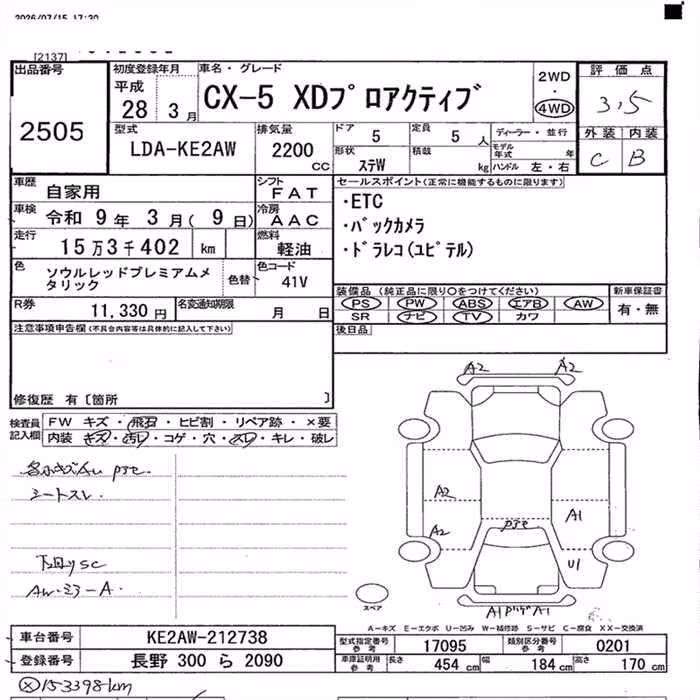 2026/07/15 17:20
[2137]
出品番号
2505
初度登録年月
平成
28 3月
車名・グレード
CX-5 XDプロアクティブ
2WD
・
4WD
評価点
3.5
外装 内装
C B
型式
LDA-KE2AW
排気量
2200 CC
ドア 5
定員 5 人
形状 ステW
積載 kg
ディーラー・並行
モデル年式 年
ハンドル 左・右
車歴 自家用
シフト FAT
車検 令和 9年 3月( 9日)
冷房 AAC
走行 15万3千402 km
燃料 軽油
色 ソウルレッドプレミアムメタリック
色替
色コード 41V
R券 11,330円
名変通知期限 月 日
セールスポイント(正常に機能するものに限ります)
・ETC
・バックカメラ
・ドラレコ(ユピテル)
装備品(純正品に限り○をつけてください)
PS PW ABS エアB AW
SR ナビ TV カワ
新車保証書
有・無
後日品
注意事項申告欄(不具合内容等は具体的に記入して下さい)
修復歴 有〔箇所 〕
検査員記入欄
FW キズ・飛石・ヒビ割・リペア跡・×要
内装 キズ・汚レ・コゲ・穴・スレ・キレ・破レ
シートスレ.
下回りSC
AW・ミラーA.
A2 A2
A2
A2
A1
U1
A1 A1
スペア
A-キズ E-エクボ U-凹み W-補修跡 S-サビ C-腐食 XX-交換済
車台番号 KE2AW-212738
登録番号 長野 300 ら 2090
型式指定番号 参考 17095
類別区分番号 参考 0201
車庫証明用 参考 長さ 454 cm 幅 184 cm 高さ 170 cm
×153398km